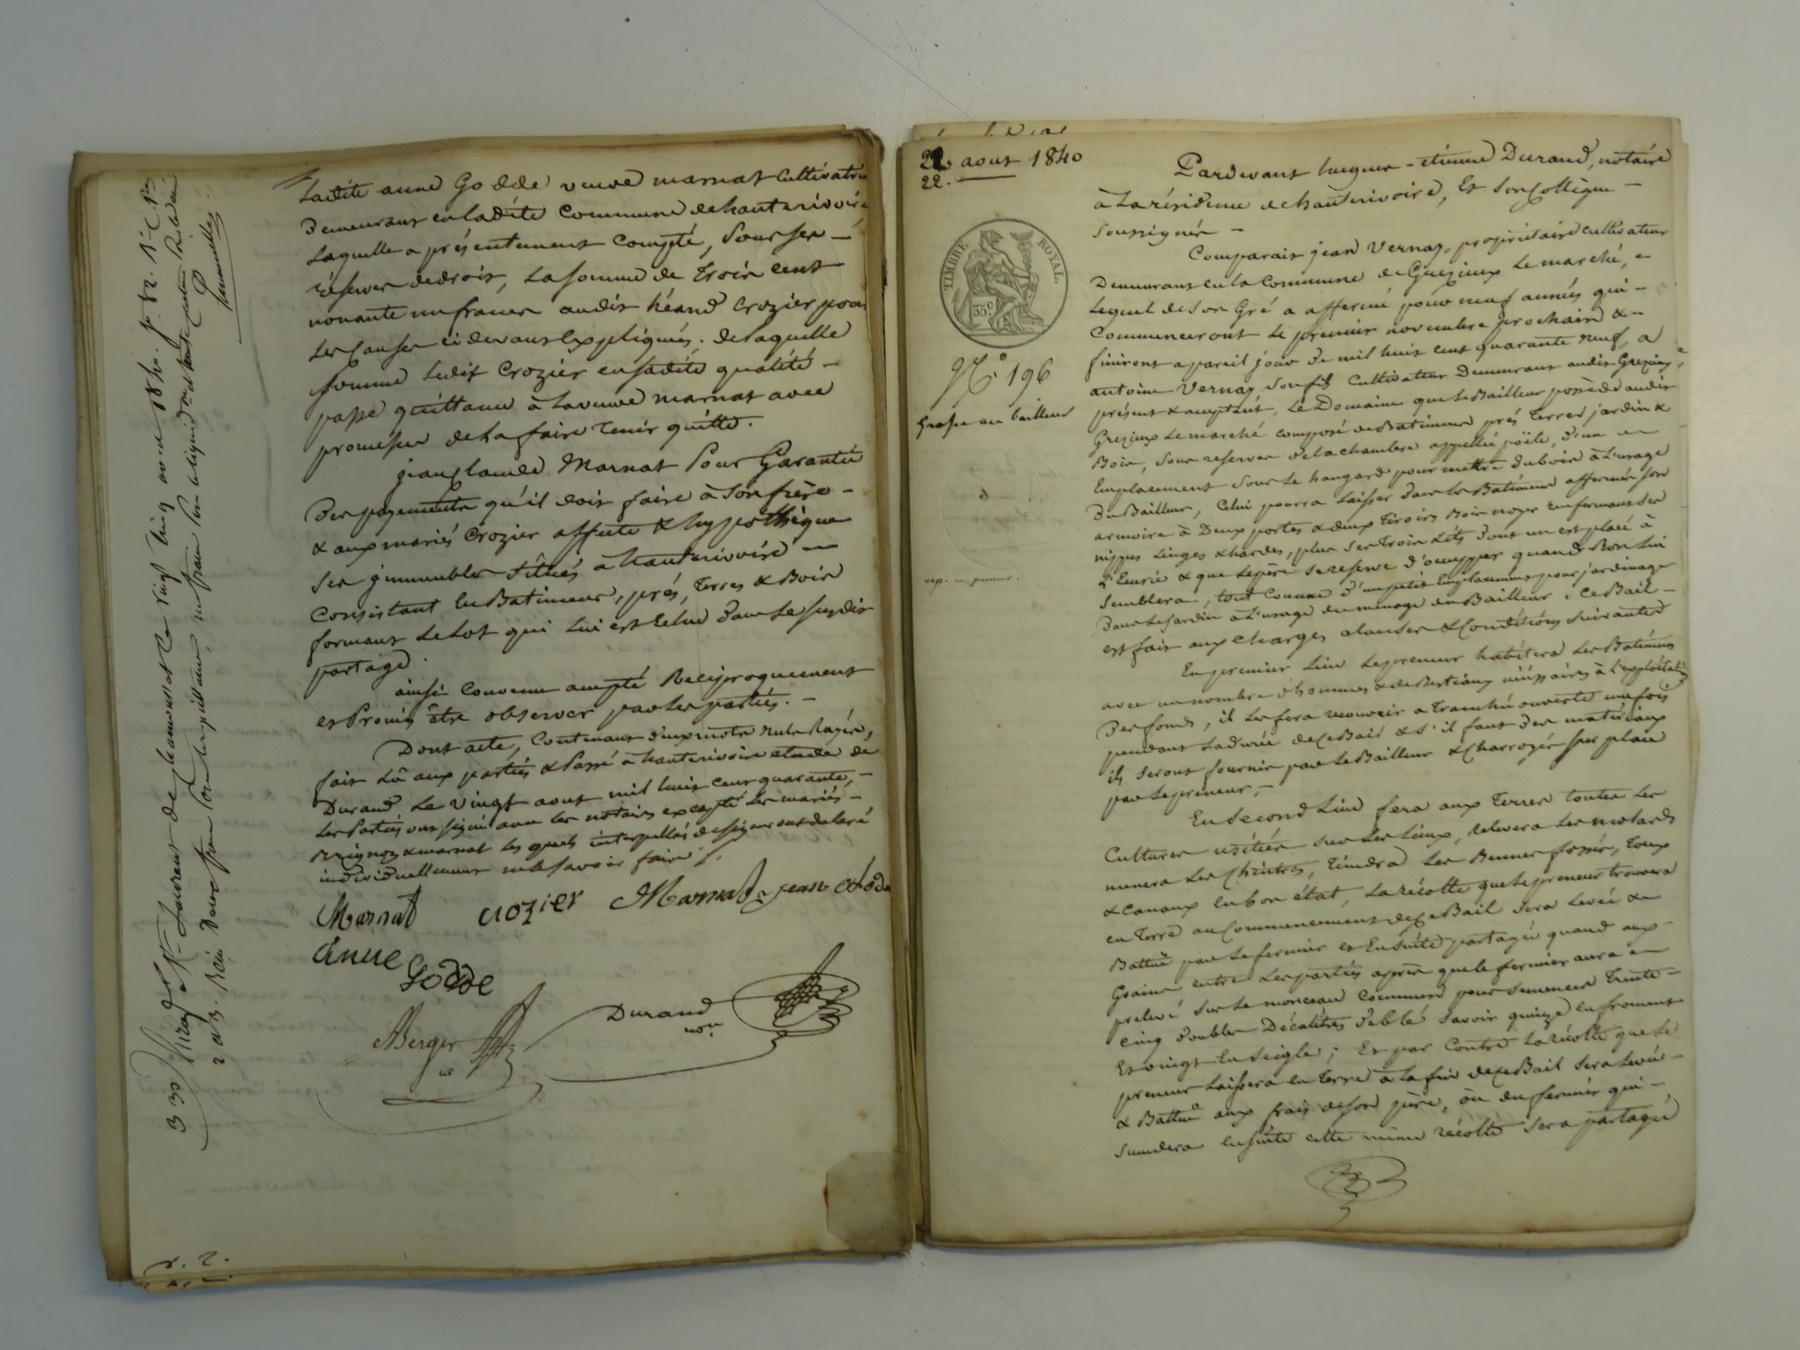 Ladite anne Godde veuve marnat Cultivatrice
Demeurant en ladite Commune de hauterivoire
Laquelle a présentement Compté, Sous ses —
réserves de droit, La somme de Trois cent
nonante un francs audit Crozier pour
Les Causes ci devant Expliquées. de laquelle
somme Ledit Crozier en sadite qualité —
passe quittance à La veuve marnat avec
promesse de La faire Tenir quitte.
jean claude Marnat Pour Garantie
Des payements qu'il doit faire à Son frère —
& aux mariés Crozier affecte & hypothèque
Ses immeubles Situés à hauterivoire —
Consistant En Batiments, prés, Terres & Bois
formant Le Lot qui Lui est Echu dans Le susdit
partage.
ainsi Convenu accepté Reciproquement
et Promis être observer par Les parties. —
Dont acte, Contenant
fait Lû aux parties & Passé à hauterivoire étude de
Durand Le vingt aout mil huit cent quarante, —
Les Parties ont signé avec les notaires excepté Les mariés —
& marnat les quels interpellés de signer ont declaré
individuellement ne Savoir faire.
Marnat crozier Marnat jean Clode
anne
Godde
Berger Durand
not.
r. 2.
22. aout 1840
22.
TIMBRE ROYAL
35c
N.° 196
Grosse au bailleur
Pardevant Jacques - etienne Durand, notaire
à La résidence de hauterivoire, Et Son Collègue —
Soussignés —
Comparait jean Vernay, propriétaire cultivateur
Demeurant en la Commune de Grezieux Le marché,
Lequel de Son Gré a affermé pour neuf années qui —
Commenceront Le premier novembre prochain & —
finiront a pareil jour de mil huit cent quarante neuf, a
antoine Vernay Son fils Cultivateur Demeurant audit Grezieux,
présent & acceptant, Le Domaine que Le Bailleur possède audit
Grezieux Le marché composé de Batiments prés Terres jardin &
Bois, Sous reserve de la chambre appellée poële, d'un
Emplacement Sous Le hangard pour mettre du bois à L'usage
Du Bailleur, Celui pourra Laisser dans Les Batiments affermés son
armoire à Deux portes & deux Tiroirs Bois noyer renfermant Ses
nippes Linges & hardes, plus Ses Trois Lits dont un est placé à
L'Ecurie & que Le père Se reserve d'occupper quand Bon Lui
Semblera, tout Comme d'un petit Emplacement pour jardinage
Dans Le jardin à L'usage du ménage du Bailleur. Ce Bail —
est fait aux Charges clauses & Conditions Suivantes
En premier Lieu Le preneur habitera Les Batiments
avec un nombre d'hommes & de Bestiaux nécessaires à L'exploitation
Des fonds, il Les fera recouvrir a Tranchée ouverte une fois
pendant La durée de Ce Bail & S'il faut des matériaux
ils Seront fournis par Le Bailleur & Charroyés Sur place
par Le preneur, —
En Second Lieu fera aux Terres toutes Les
Cultures usitées Sur Les Lieux, relevera Les motards
menera Les Chintres, Tiendra Les fossés, Tous
& Canaux en bon état, La récolte que Le preneur trouvera
en Terre au Commencement de Ce Bail sera Levée &
Battue par Le fermier et Ensuite partagée quand aux
Grains entre Les parties après que le fermier aura
prelevé Sur Le monceau Commun pour Semence Trente —
cinq doubles Décalitres de blé Savoir quinze en froment
Et vingt En Seigle; Et par Contre La récolte que Le
preneur Laissera en Terre à La fin de Ce Bail Sera Levée —
& Battue aux frais de Son père, ou du fermier qui —
Succedera ensuite cette même récolte Sera partagée